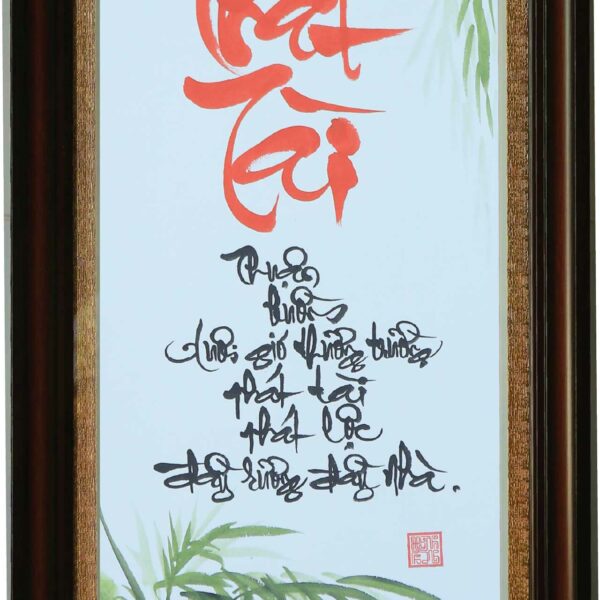 Phát
Tài
Thuận
buồm
xuôi gió thường trường
phát tài
phát lộc
đầy rương đầy nhà.